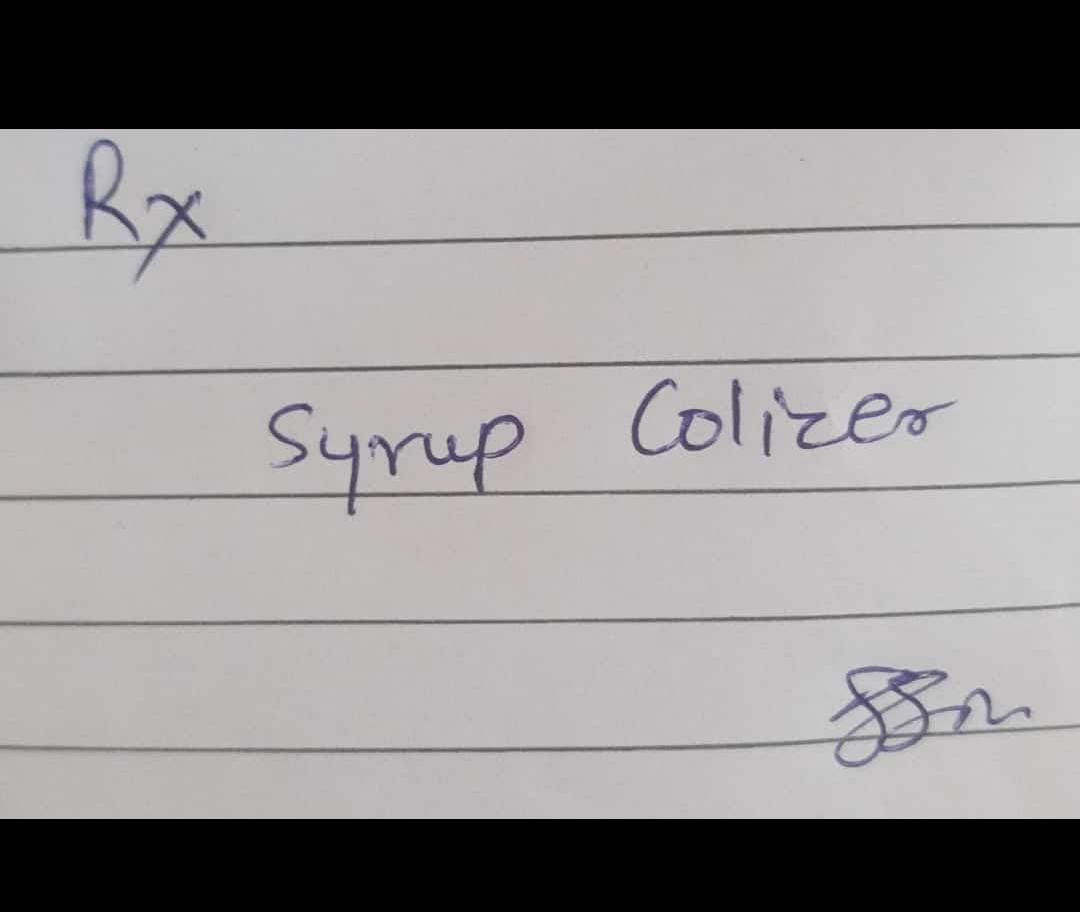 Rx
Syrup Colizer